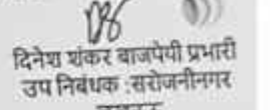 दिनेश शंकर बाजपेयी प्रभारी
उप निबंधक :सरोजनीनगर